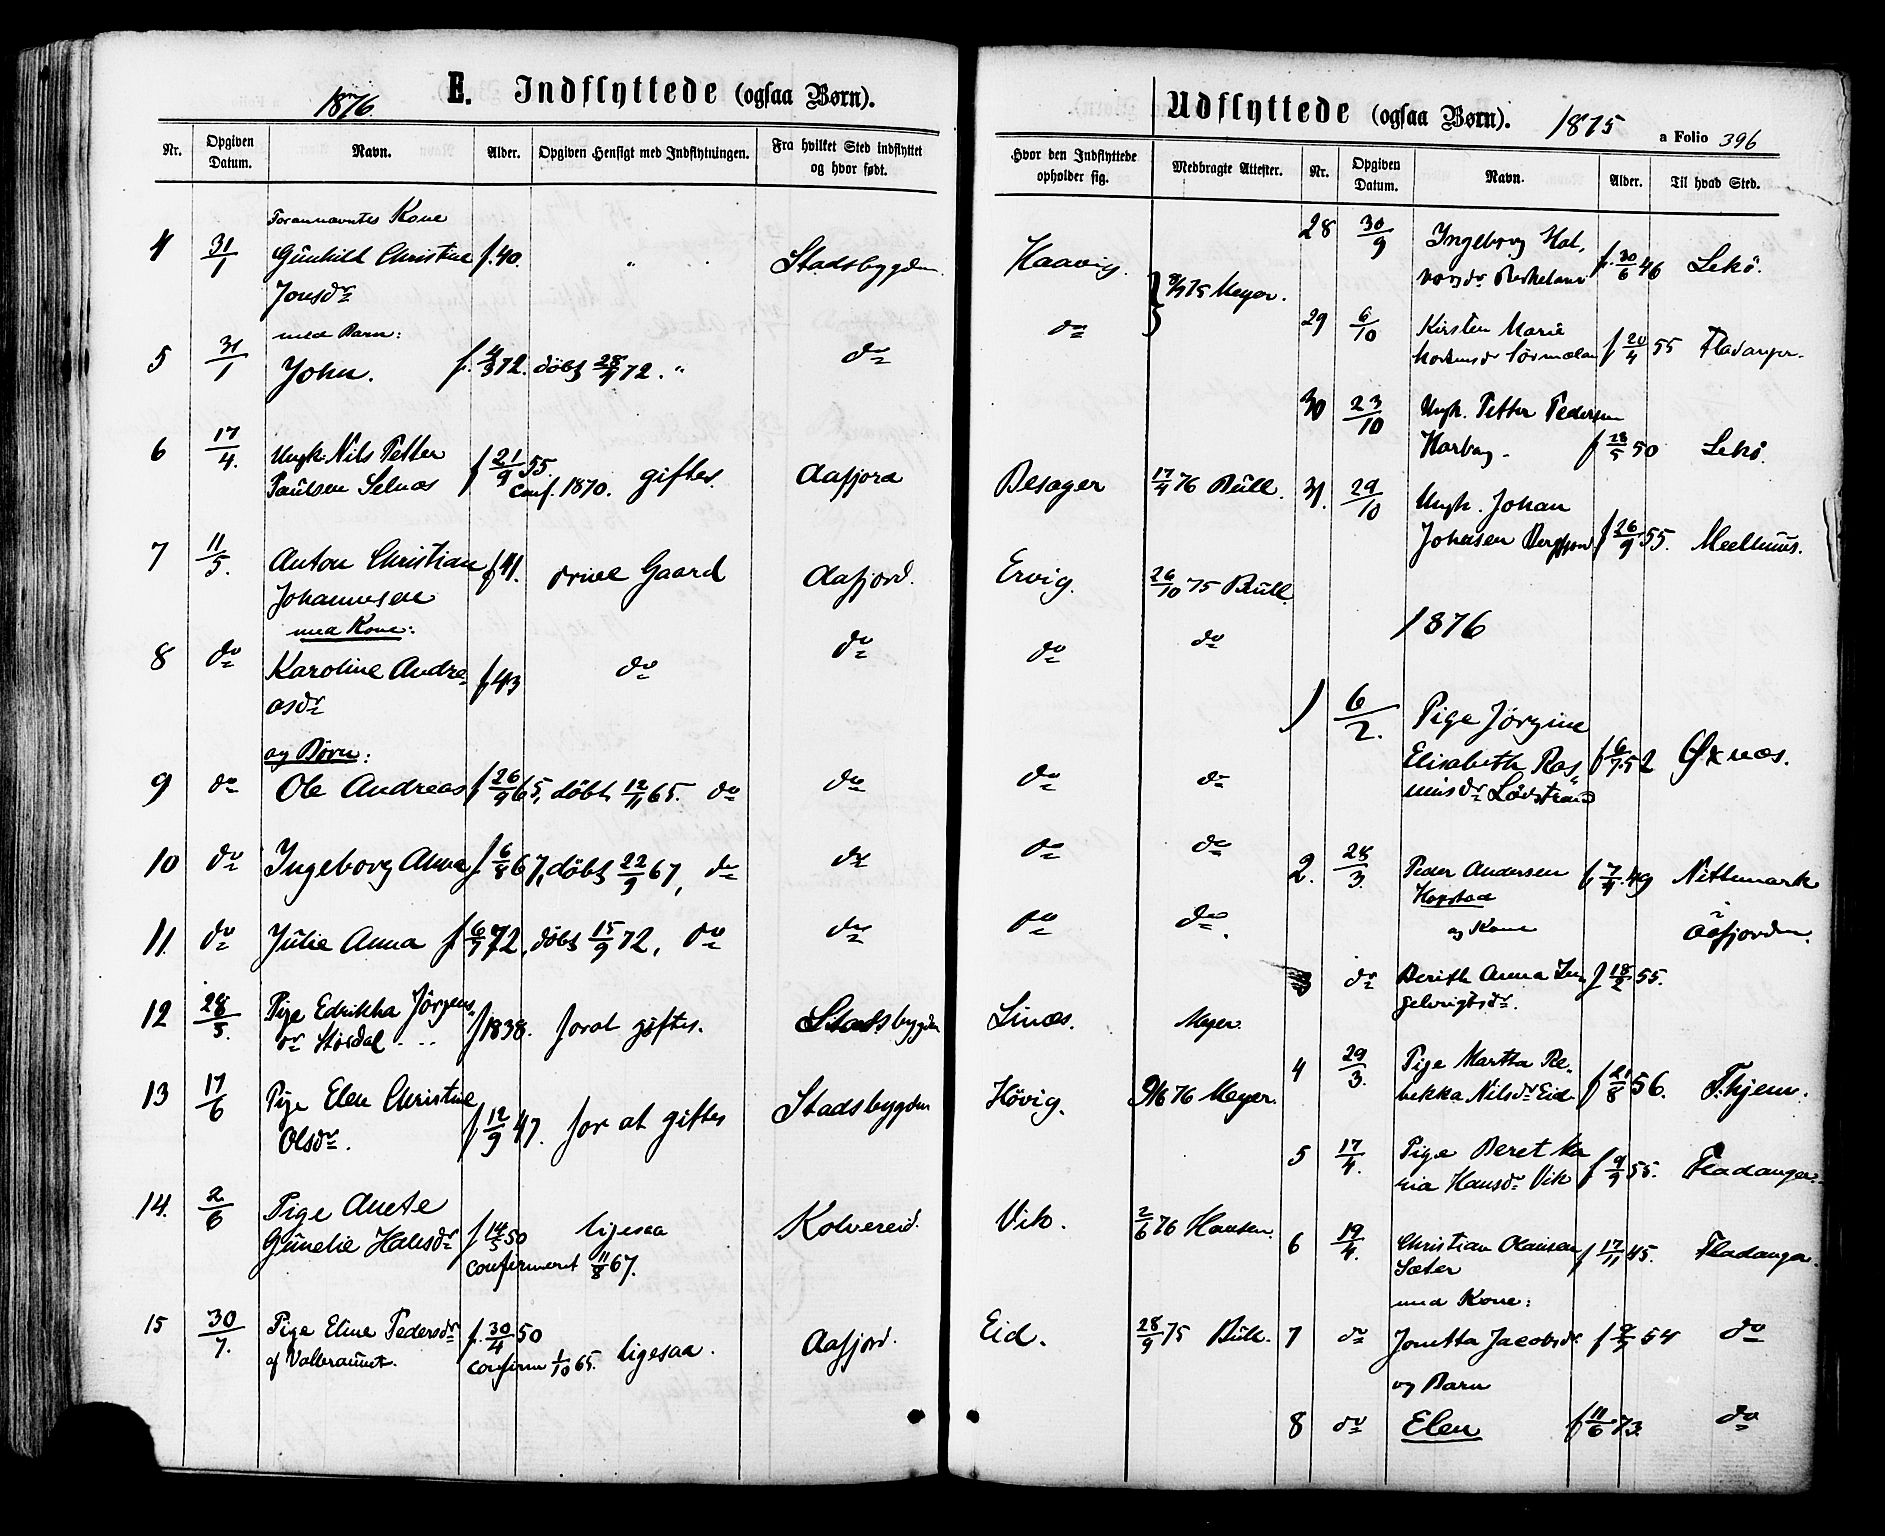 1876.
E. Indflyttede (ogsaa Børn).
Nr. Opgiven Datum. Navn. Alder. Opgiven Hensigt med Indflytningen. Fra hvilket Sted indflyttet og hvor født.
Forannævntes Kone
4 31/1 Gunhild Christine f. 40. " Stadsbygden
Jonsdr
med Barn:
5 31/1 John. f. 4/3 72. døbt 28/4 72. " do
6 17/4. Ungk. Nils Petter f 21/9 55
Paulsen Selnæs conf. 1870. giftes. Aafjord
7 11/5. Anton Christian f 41. drive Gaard Aafjord.
Johannesen
med Kone:
8 do Karoline Andre- f 43 do do
asdr
og Børn:
9 do Ole Andreas f 26/9 65, døbt 12/11 65. do do
10 do Ingeborg Anna f 6/8 67, døbt 22/9 67, do do
11. do Julie Anna f 6/7 72, døbt 15/9 72, do do
12 28/5. Pige Edrikka Jørgens
dr Størdal f 1838. forat giftes. Stadsbygden
13 17/6 Pige Elen Christine f 12/9 47. for at giftes Stadsbygden
Olsdr.
14. 2/6 Pige Anete
Gunelie Halsdr f 14/5 50 ligesaa Kolvereid.
confirmeret 11/8 67.
15 30/7. Pige Eline Pedersdr f. 30/4 50
af Valbraunet. confirm 1/10 65. ligesaa. Aafjord.
Udflyttede (ogsaa Børn). 1875
a Folio 396
Hvor den Indflyttede opholder sig. Medbragte Attester. Nr. Opgiven Datum. Navn. Alder. Til hvad Sted.
Haavig.
do
75 Meyer.
Besager 17/4 76 Bull.
Ervig. 26/10 75 Bull.
do do
do do
do do
do do.
Linæs. Meyer.
Høvig. 9/6 76 Meyer.
Vik. 2/6 76 Hansen.
Eid. 28/9 75 Bull.
28 30/9 Ingeborg Hal-
vorsdr f. 30/6 46 Lekø.
29 6/10 Kirsten Marie
f 20/4 55 Fladanger.
30 23/10 Ungk. Petter Pedersen
Harbag. f 28/5 50 Lekø.
31. 29/10 Ungk. Johan
Johnsen f 26/9 55. Meelhuus.
1876
1 6/2. Pige Jørgine
Elisabeth Ras- f 6/7 52 Øxnæs.
musdr Lødstrand
2. 28/3. Peder Andersen f 7/4. 49 Nettemark
Hopstad i
og Kone Aafjorden.
3 do Berith Anna In- f 18/2 55.
gelvrigtsdr.
4 29/3. Pige Martha Re-
bekka Nilsdr Eid f 21/8 56. T.hjem.
5 17/4. Pige Beret Ma
ria Hansdr Vik f 9/9 55. Fladanger.
6 19/4. Christian Olausen f 17/11 45. Fladanger.
Sæter
med Kone:
7 do Jonetta Jacobsdr f 54 do
og Barn
8 do Elen f 11/6 73. do